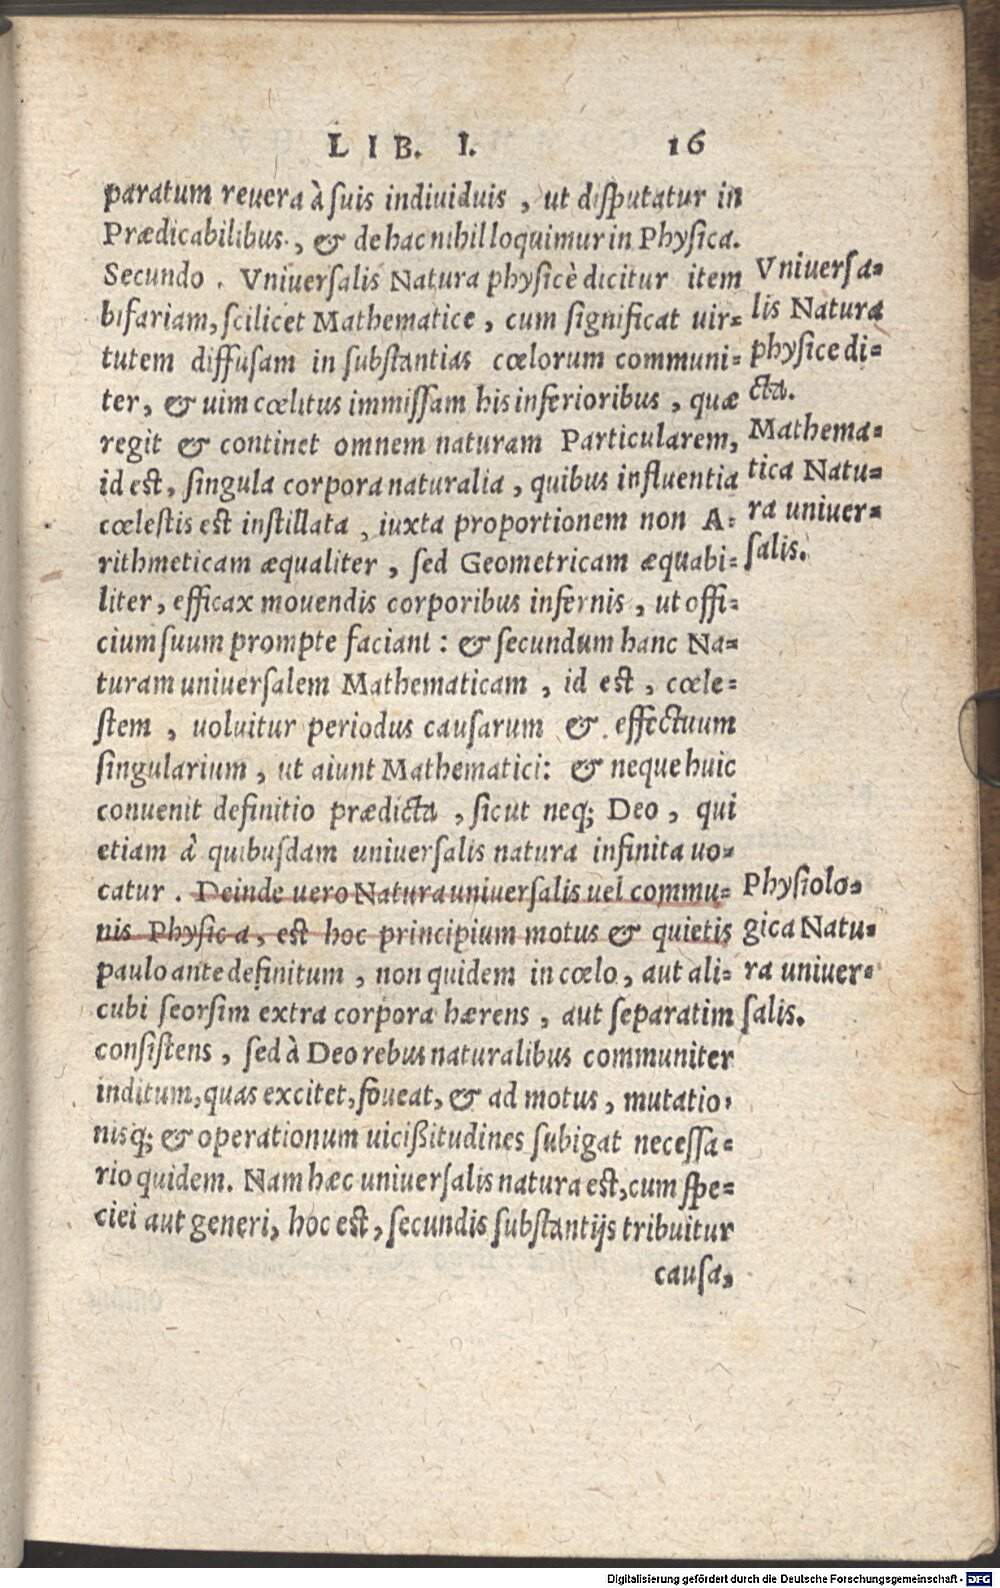 LIB. I. 16
paratum reuera à ſuis indiuiduis , ut diſputatur in
Prædicabilibus , & de hac nihil loquimur in Phyſica.
Secundo . Vniuerſalis Natura phyſicè dicitur item
bifariam, ſcilicet Mathematice , cum ſignificat uir=
tutem diffuſam in ſubſtantias cœlorum communi=
ter, & uim cœlitus immiſſam his inferioribus , quæ
regit & continet omnem naturam Particularem,
id eſt, ſingula corpora naturalia , quibus influentia
cœleſtis eſt inſtillata , iuxta proportionem non A=
rithmeticam æqualiter , ſed Geometricam æquabi=
liter, efficax mouendis corporibus infernis , ut offi=
cium ſuum prompte faciant : & ſecundum hanc Na=
turam uniuerſalem Mathematicam , id eſt , cœle=
ſtem , uoluitur periodus cauſarum & effectuum
ſingularium , ut aiunt Mathematici: & neque huic
conuenit definitio prædicta , ſicut neq; Deo , qui
etiam à quibuſdam uniuerſalis natura infinita uo=
catur . Deinde uero Natura uniuerſalis uel commu=
nis Phyſica, eſt hoc principium motus & quietis
paulo ante definitum , non quidem in cœlo, aut ali=
cubi ſeorſim extra corpora hærens , aut ſeparatim
conſiſtens , ſed à Deo rebus naturalibus communiter
inditum, quas excitet, foueat, & ad motus, mutatio=
nisq; & operationum uicißitudines ſubigat neceſſa=
rio quidem. Nam hæc uniuerſalis natura eſt, cum ſpe=
ciei aut generi, hoc eſt, ſecundis ſubſtantijs tribuitur
cauſa,
Vniuerſa=
lis Natura
phyſice di=
cta.
Mathema=
tica Natu=
ra uniuer=
ſalis.
Phyſiolo=
gica Natu=
ra uniuer=
ſalis.
Digitalisierung gefördert durch die Deutsche Forschungsgemeinschaft - DFG